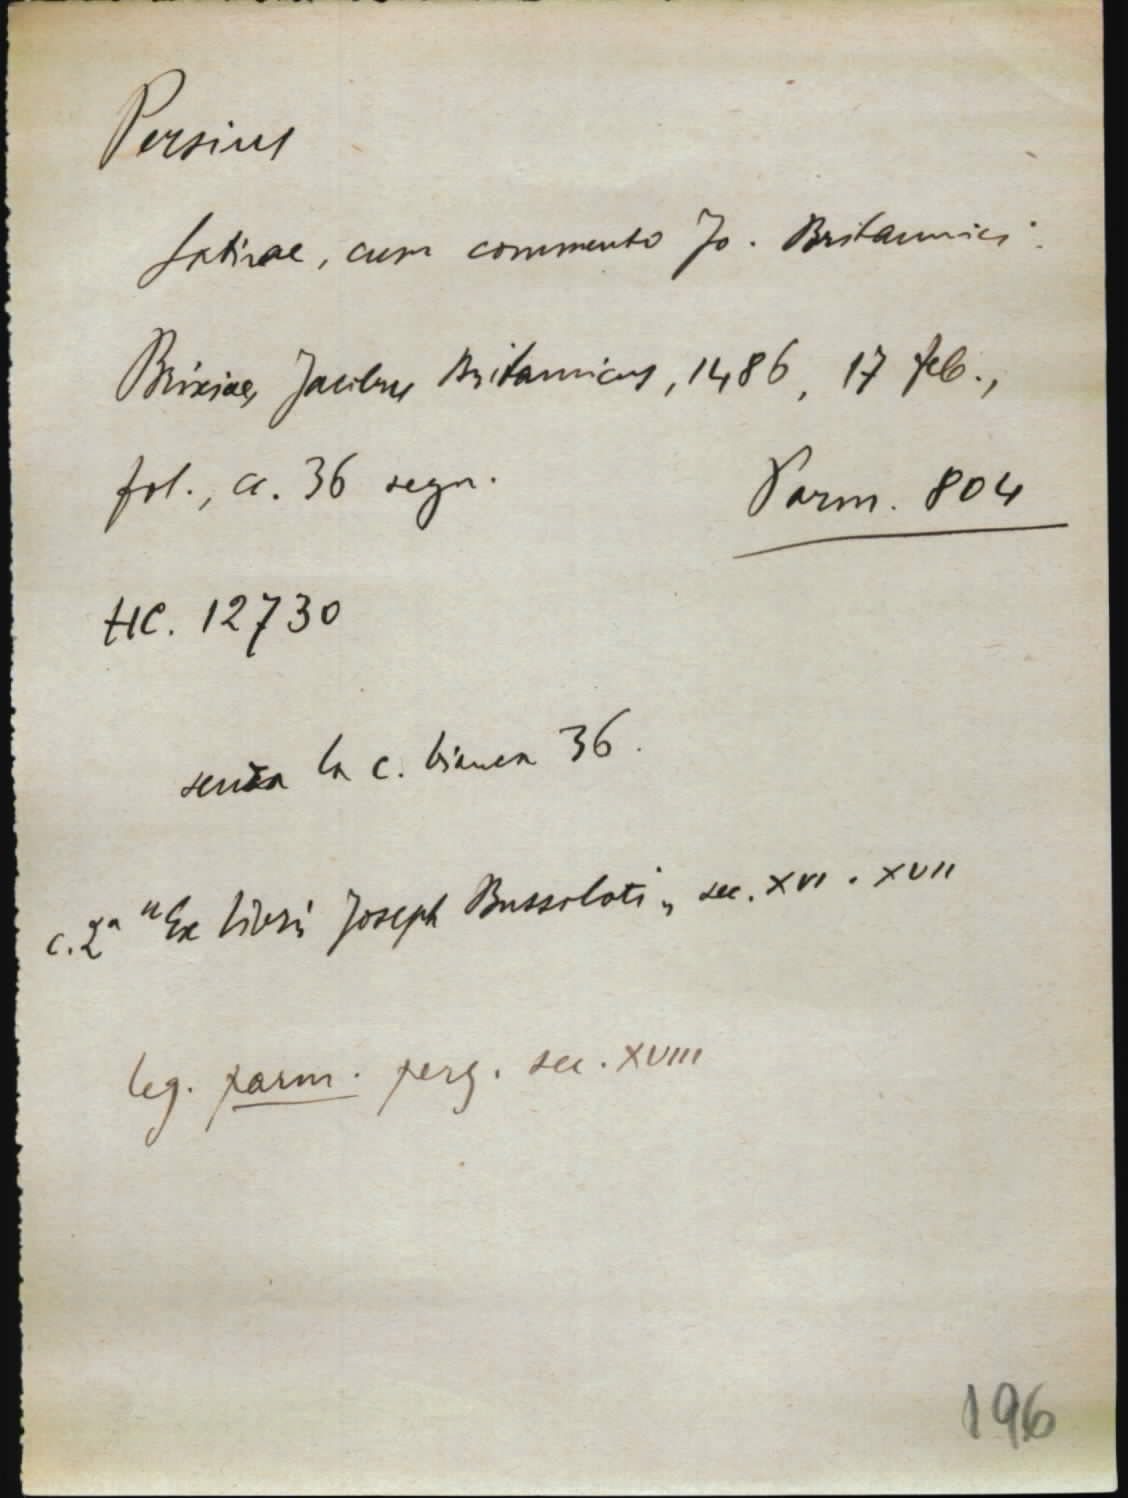 Persius
Satirae, cum commento Jo. Britannici.
Brixiae, Jacobus Britannicus, 1486, 17 feb.,
fol., cc. 36 segn.
Parm. 804
HC. 12730
senza la c. bianca 36.
c. 2a "Ex libris Joseph Bussoloti„ sec. XVI-XVII
leg. parm. perg. sec. XVIII
196